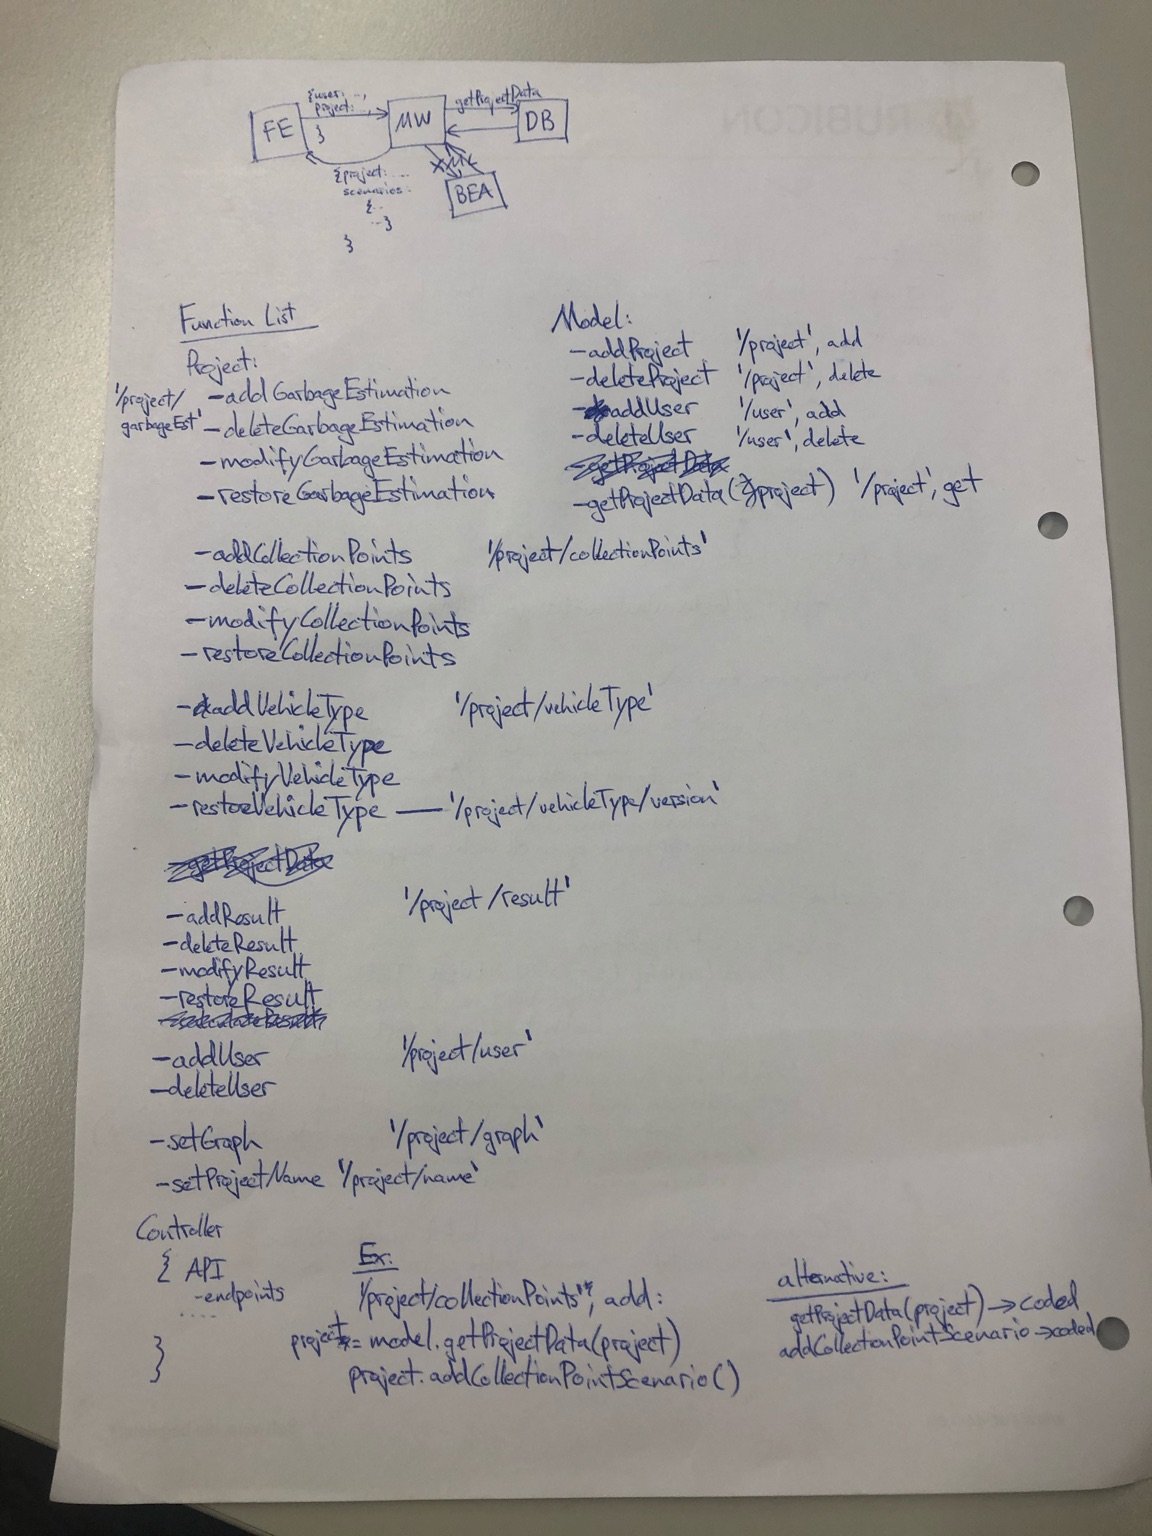 {user: ...,
project: ...,
}
FE
MW
getProjectData
DB
{project: ...
scenarios:
{..
...}
}
BEA
Function List
Project:
'/project/
garbageEst'
-addGarbageEstimation
-deleteGarbageEstimation
-modifyGarbageEstimation
-restoreGarbageEstimation
-addCollectionPoints '/project/collectionPoints'
-deleteCollectionPoints
-modifyCollectionPoints
-restoreCollectionPoints
-addVehicleType '/project/vehicleType'
-deleteVehicleType
-modifyVehicleType
-restoreVehicleType — '/project/vehicleType/version'
-getProjectData
-addResult '/project/result'
-deleteResult
-modifyResult
-restoreResult
-addUser '/project/user'
-deleteUser
-setGraph '/project/graph'
-setProjectName '/project/name'
Model:
-addProject '/project', add
-deleteProject '/project', delete
-addUser '/user', add
-deleteUser '/user', delete
-getProjectData
-getProjectData(project) '/project', get
Controller
{ API
-endpoints
....
}
Ex:
'/project/collectionPoints', add:
project = model.getProjectData(project)
project.addCollectionPointScenario()
alternative:
getProjectData(project) → coded
addCollectionPointScenario → coded
RUBICON